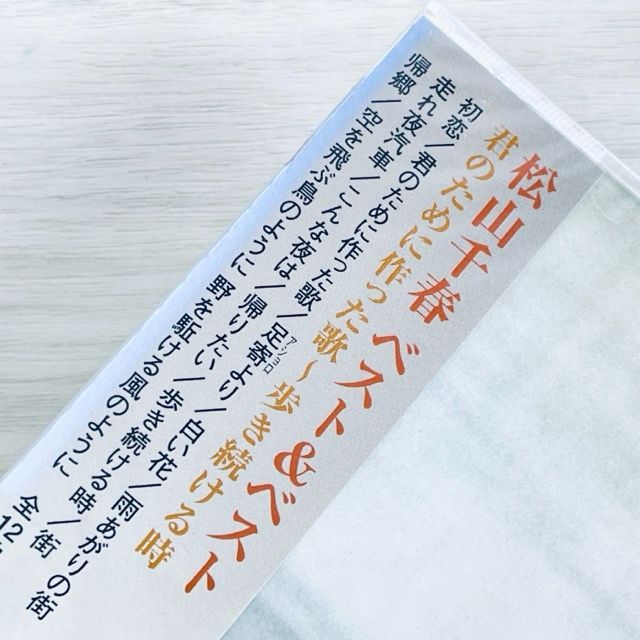 松山千春 ベスト&ベスト
君のために作った歌～歩き続ける時
初恋/君のために作った歌/足寄より/白い花/雨あがりの街
アショロ
走れ夜汽車/こんな夜は/帰りたい/歩き続ける時/街
帰郷/空を飛ぶ鳥のように 野を駈ける風のように 全12